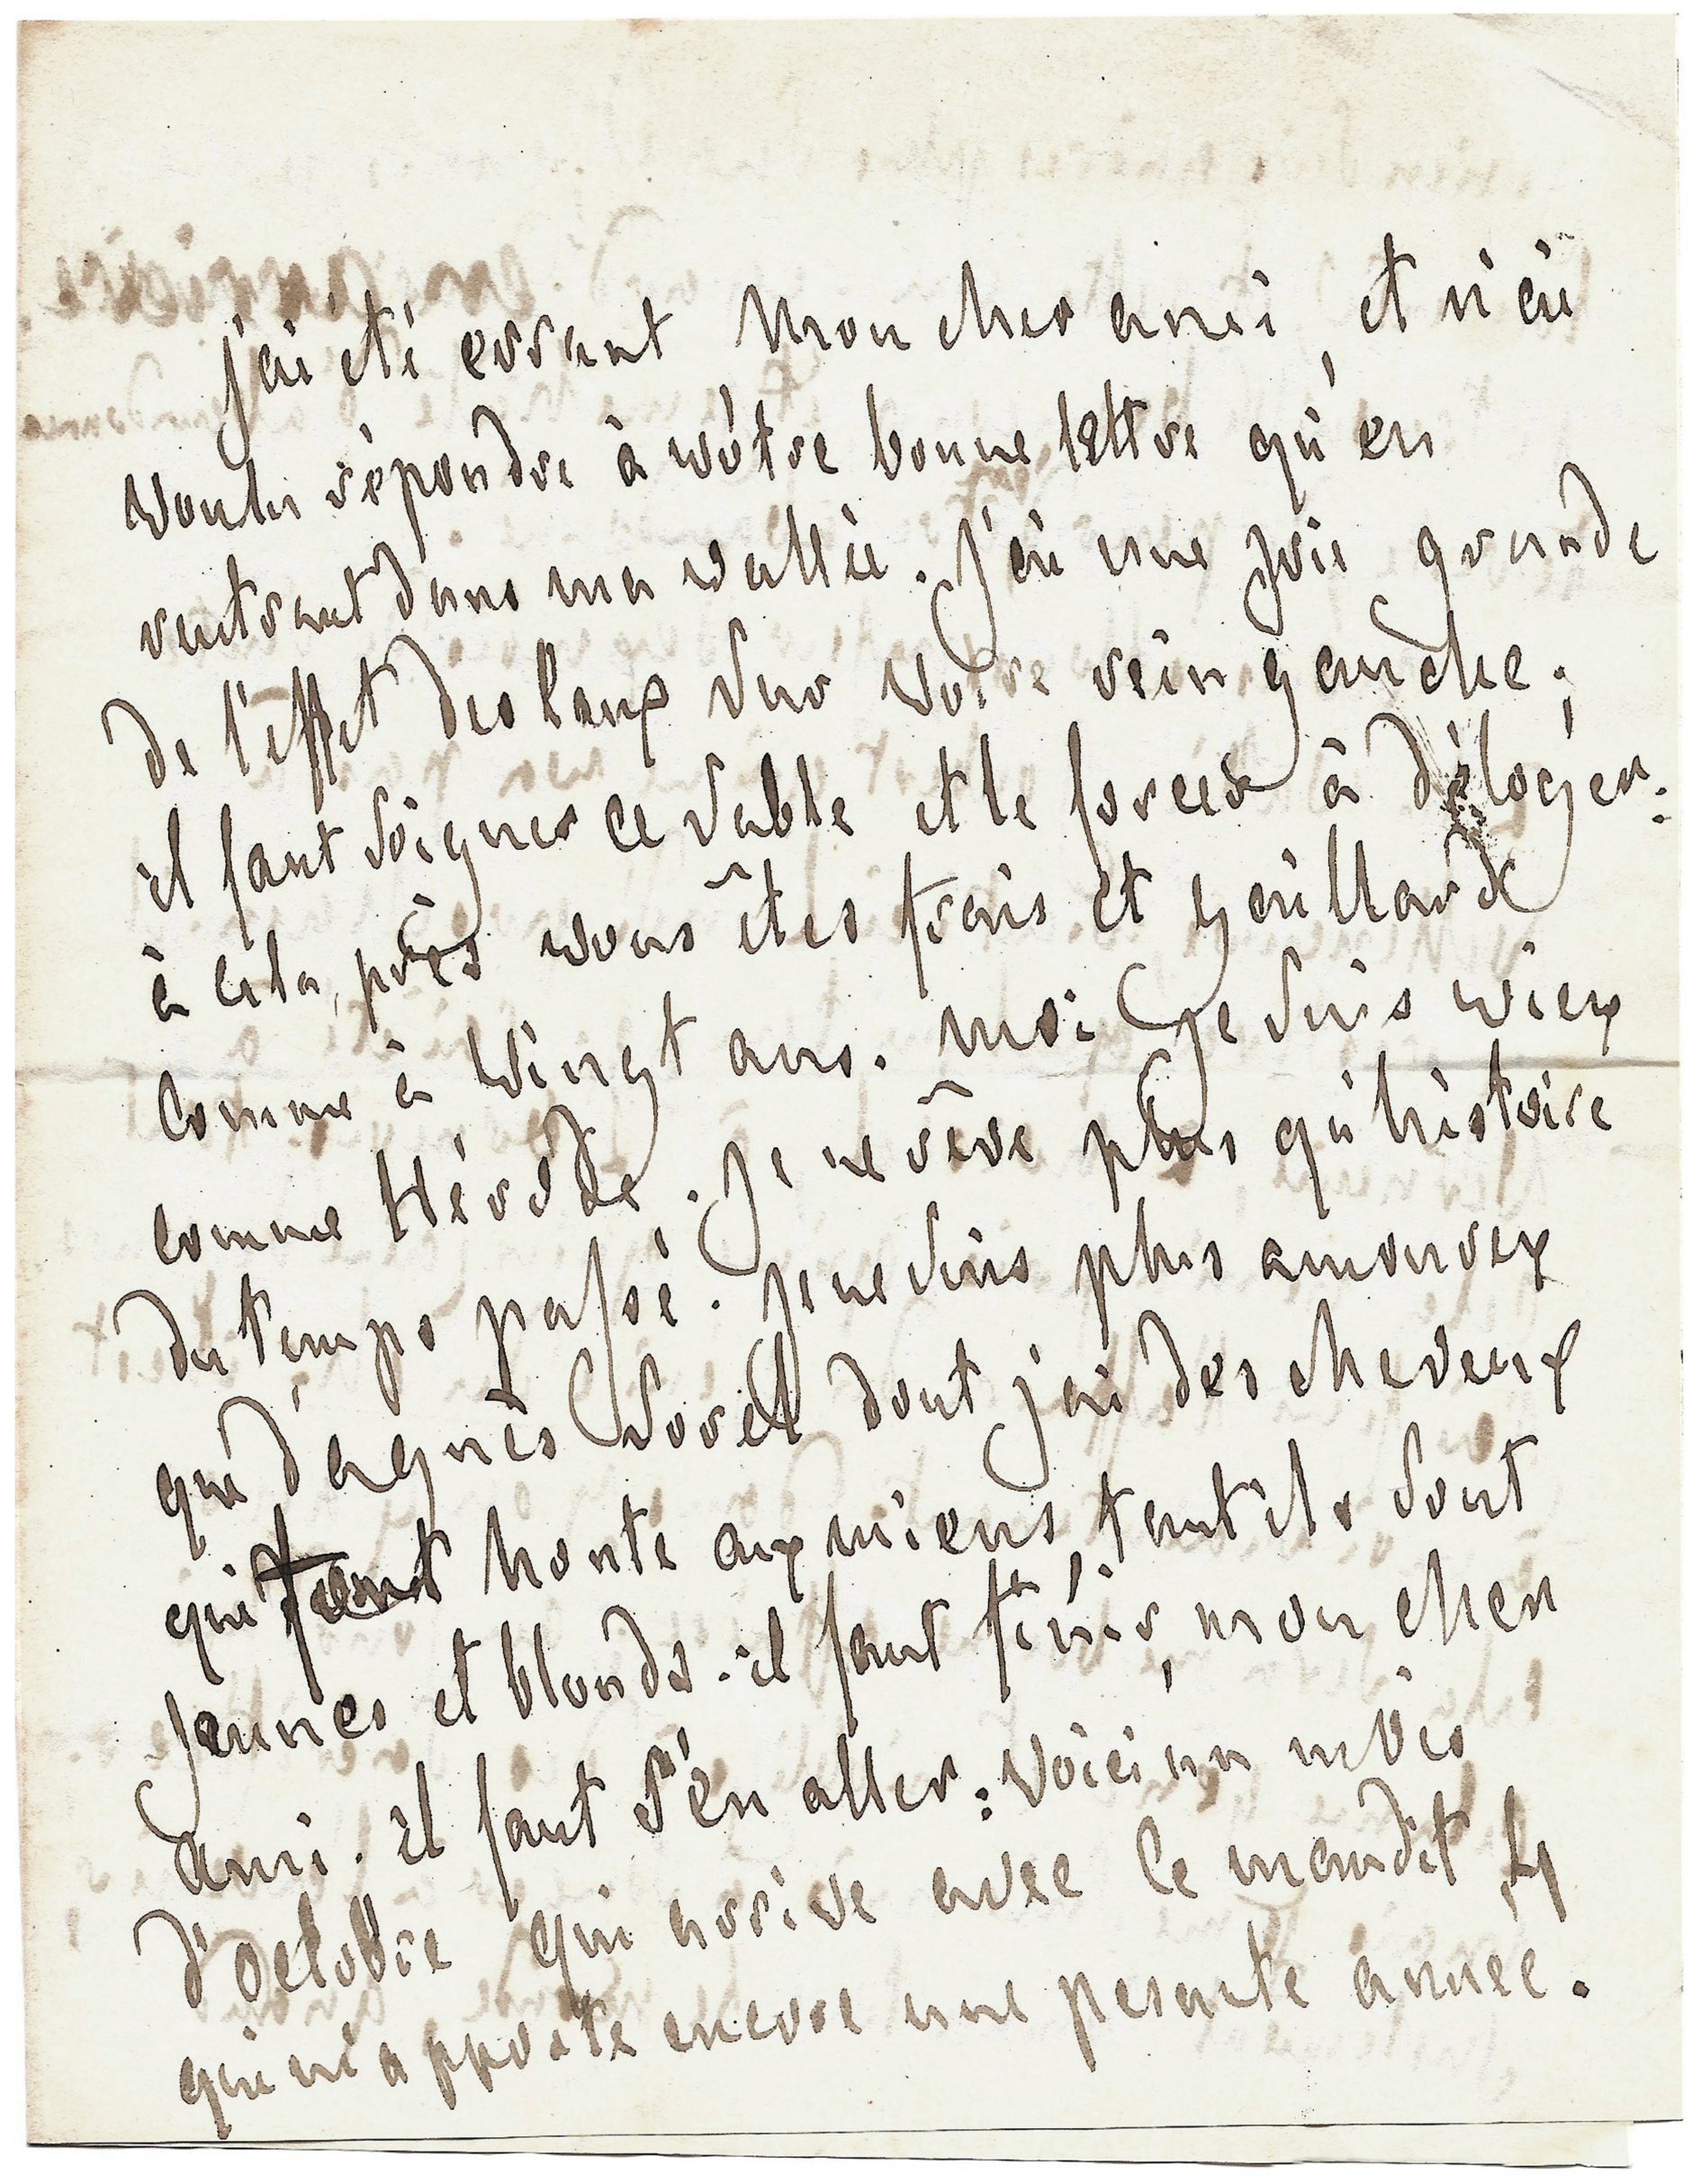 j'ai été errant mon cher ami, et n'ai
voulu répondre à votre bonne lettre qu'en
rentrant dans ma vallée. J'ai une joie grande
de l'effet des Eaux sur votre rein gauche;
il faut soigner ce sable et le forcer à déloger:
à cela près vous êtes frais et gaillard
comme à vingt ans. moi je suis vieux
comme Hérode. Je ne rêve plus qu'histoire
du temps passé. Je ne suis plus amoureux
que d'agnès Sorel dont j'ai des cheveux
qui font honte aux miens, tant ils sont
jeunes et blonds. il faut finir, mon cher
ami. il faut s'en aller: voici un mois
d'octobre qui arrive avec le maudit 4
qui m'apporte encore une pesante année.